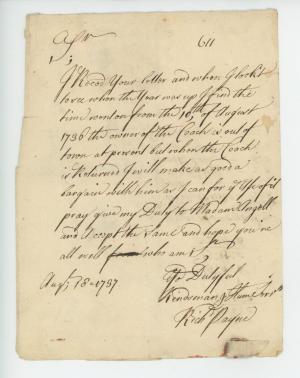 Sr
611
I Reced Your letter and when I look't
to see when the Year was up I find the
time went on from the 16th of August
1736 the owner of the Coach is out of
town at present but when the Coach
is Returned I will make as good a
bargain with him as I can for ye Use of it
pray give my Duty to Madam Angell
and Except the Same and hope you're
all well from who am
Yr Dutyfull
Kindsman & Humle Servt
Richd Payne
Augt 18 - 1737